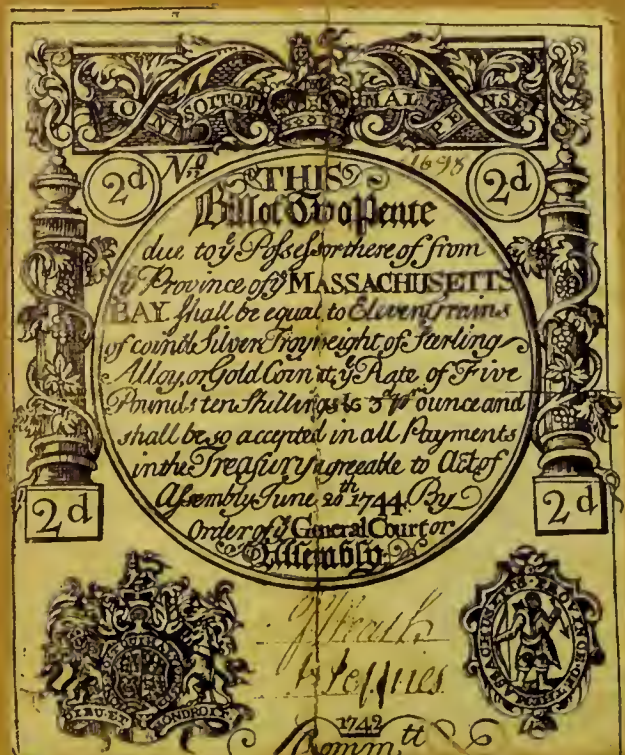 HONI SOIT QUI MAL Y PENSE
2d No 1698 2d
THIS
Bill of Two Pence
due to yͤ Possessor thereof from
yͤ Province of yͤ MASSACHUSETTS
BAY shall be equal to Eleven grains
of coin'd Silver Troy weight of sterling
Alloy, or Gold Coin at yͤ Rate of Five
Pounds ten Shillings & 3d pr ounce and
shall be so accepted in all Payments
in the Treasury agreeable to Act of
Assembly June 20th 1744 By
Order of yͤ General Court or
Assembly.
2d 2d
DIEU ET MON DROIT
Jeffries
1742
Commtt